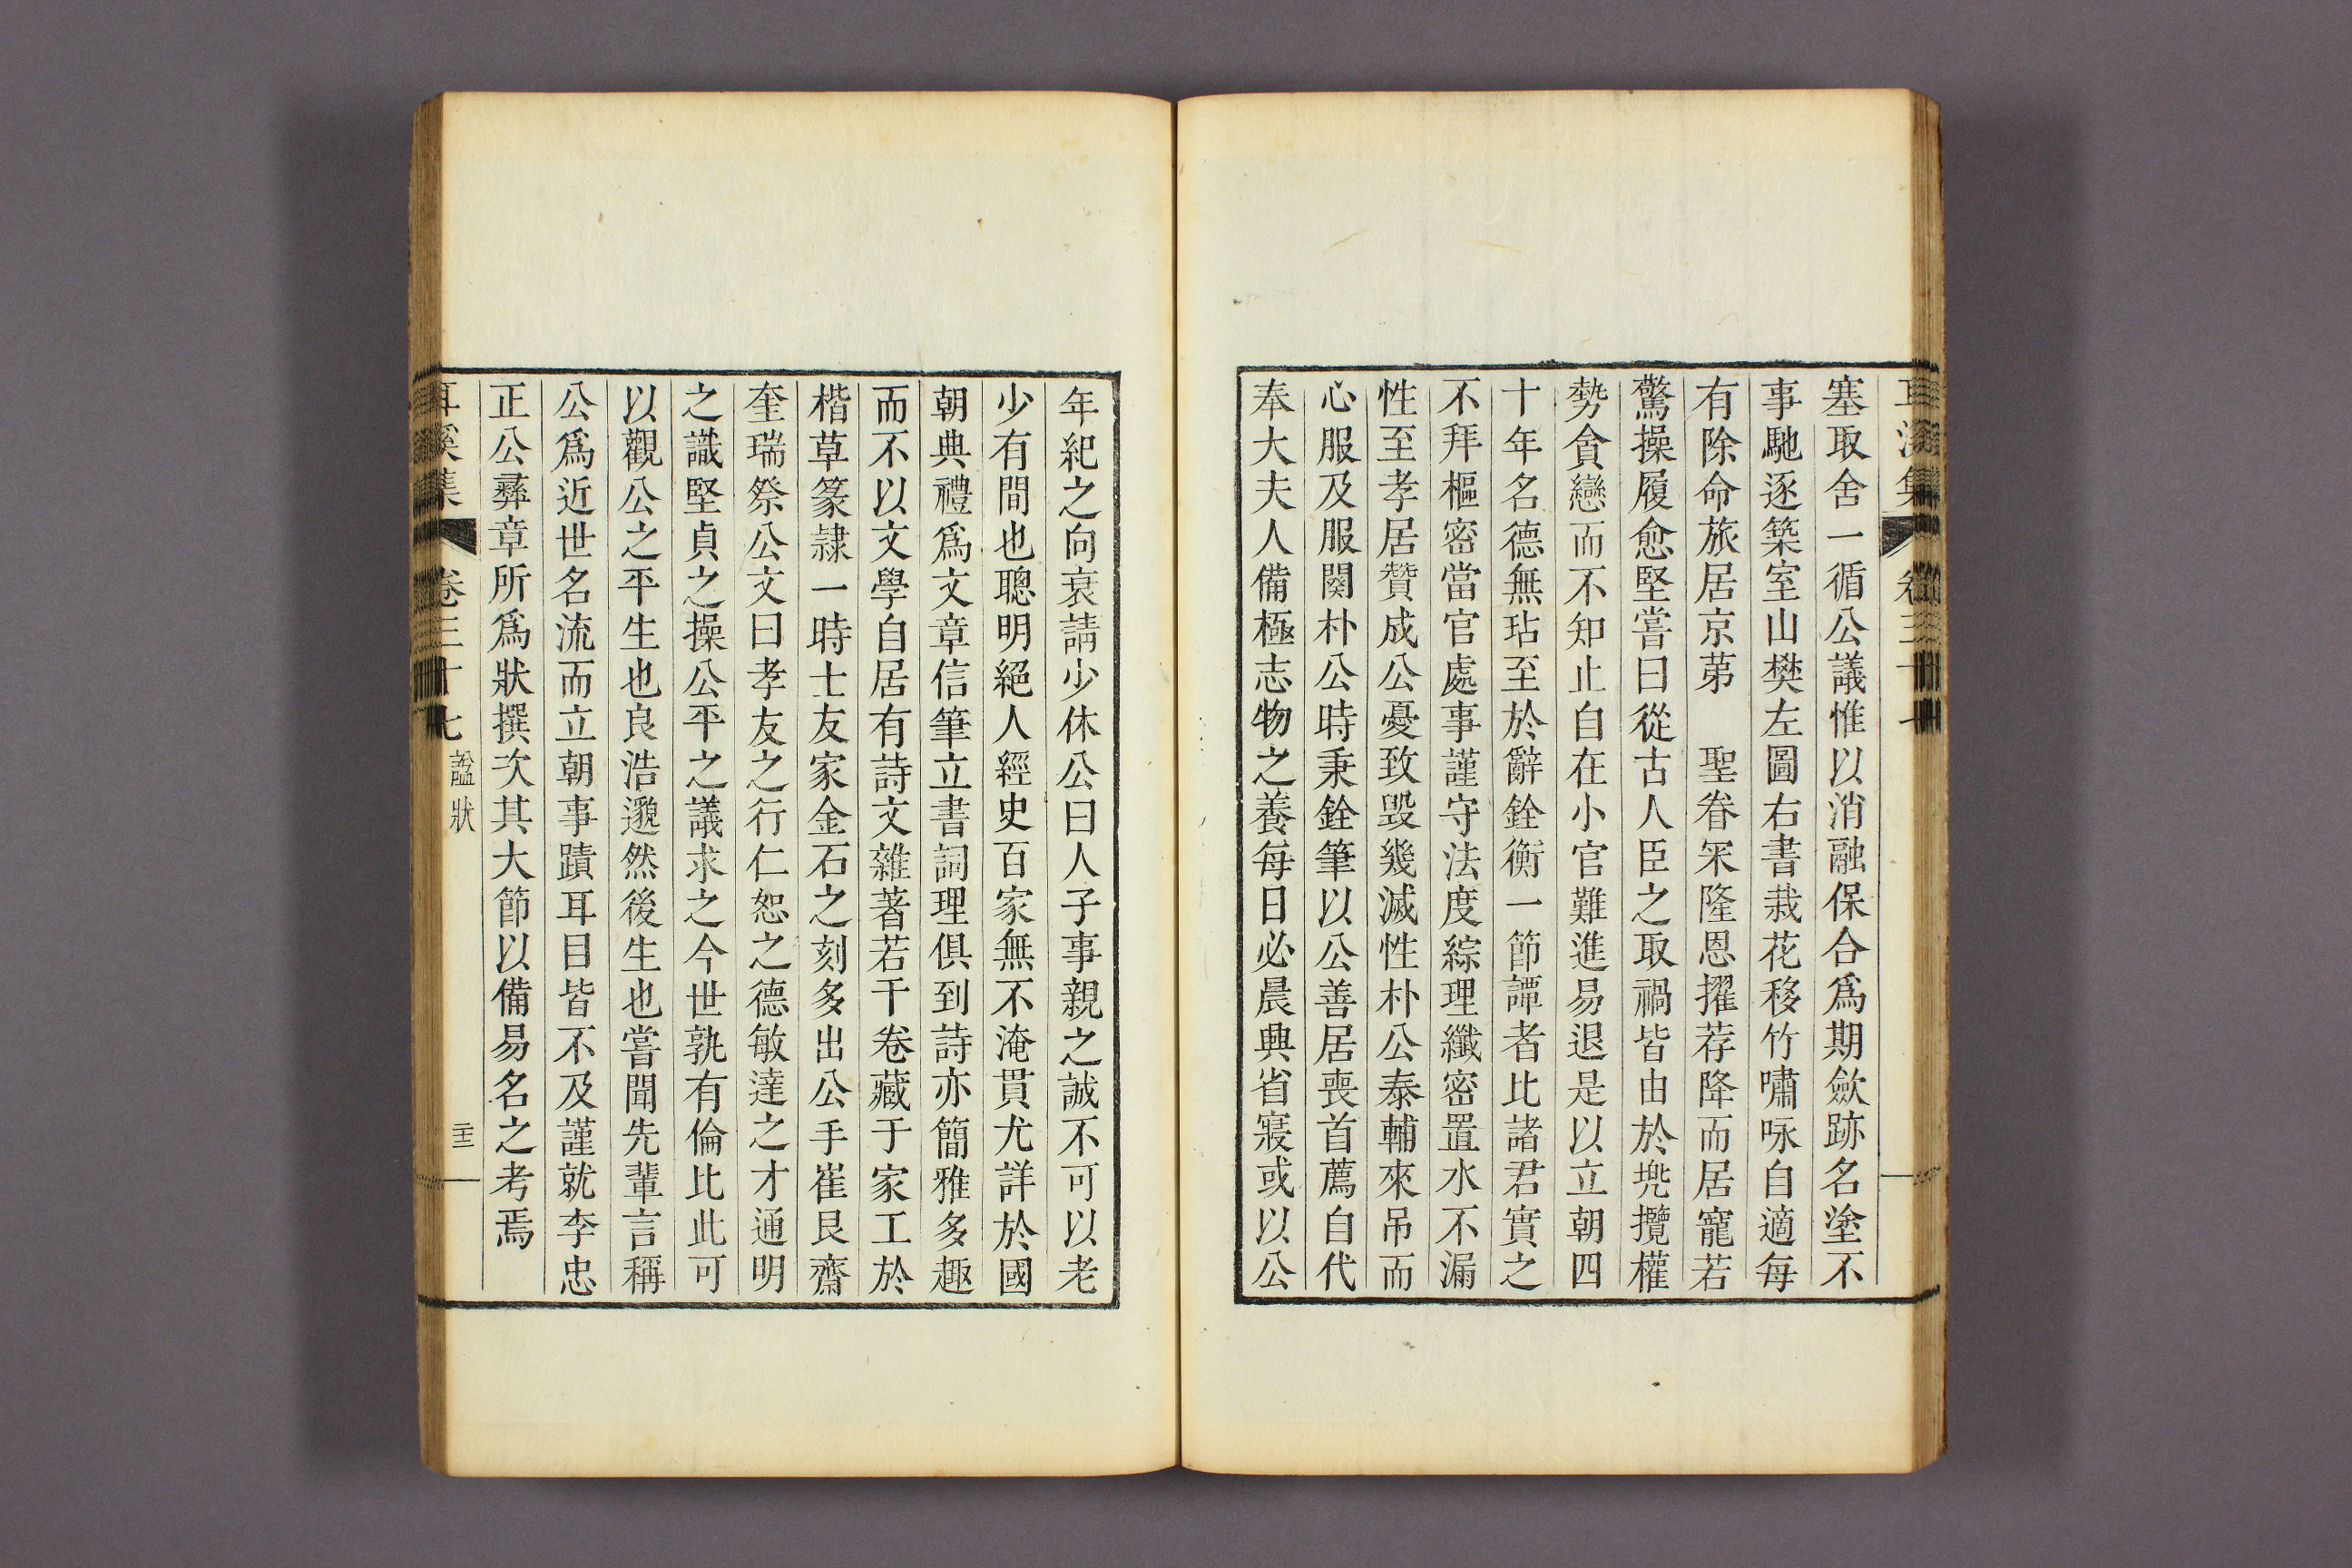 塞取舍一循公議惟以消融保合爲期歛跡名塗不
事馳逐築室山樊左圖右書栽花移竹嘯咏自適每
有除命旅居京第　聖眷冞隆恩擢荐降而居寵若
驚操履愈堅嘗曰從古人臣之取禍皆由於兠攬權
勢貪戀而不知止自在小官難進易退是以立朝四
十年名德無玷至於辭銓衡一節譚者比諸君實之
不拜樞密當官處事謹守法度綜理纖密置水不漏
性至孝居贊成公憂致毀幾滅性朴公泰輔來吊而
心服及服闋朴公時秉銓筆以公善居喪首薦自代
奉大夫人備極志物之養每日必晨興省寢或以公
年紀之向衰請少休公曰人子事親之誠不可以老
少有間也聰明絕人經史百家無不淹貫尤詳於國
朝典禮爲文章信筆立書詞理俱到詩亦簡雅多趣
而不以文學自居有詩文雜著若干卷藏于家工於
楷草篆隷一時士友家金石之刻多出公手崔艮齋
奎瑞祭公文曰孝友之行仁恕之德敏達之才通明
之識堅貞之操公平之議求之今世孰有倫比此可
以觀公之平生也良浩邈然後生也嘗聞先輩言稱
公爲近世名流而立朝事蹟耳目皆不及謹就李忠
正公彝章所爲狀撰次其大節以備易名之考焉
耳溪集　卷三十七　諡狀